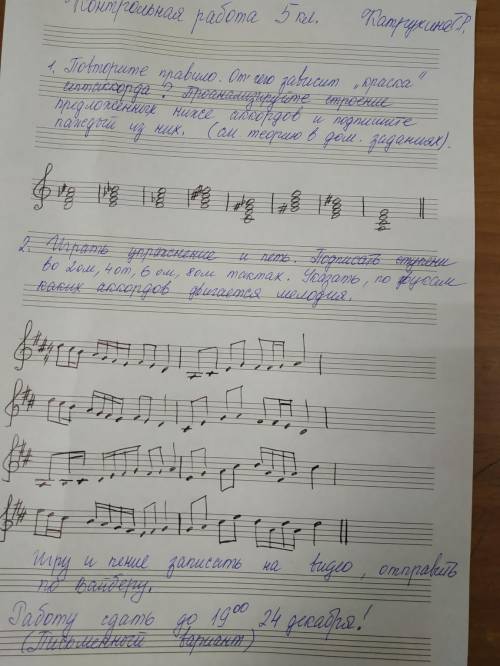 Контрольная работа 5 кл. Катрухина Р.
1. Повторите правило. От чего зависит „краска"
септаккорда? Проанализируйте строение
предложенных ниже аккордов и подпишите
каждый из них. (см. теорию в дом. заданиях).
2. Играть упражнение и петь. Подписать ступени
во 2ом, 4ом, 6ом, 8ом тактах. Указать, по звукам
каких аккордов двигается мелодия.
Игру и пение записать на видео, отправить
по вайберу.
Работу сдать до 19⁰⁰ 24 декабря!
(Письменный вариант)